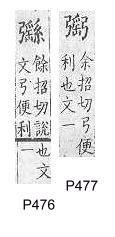 余招切弓便
利也文一
餘招切說
文弓便利
也文
一
P477
P476